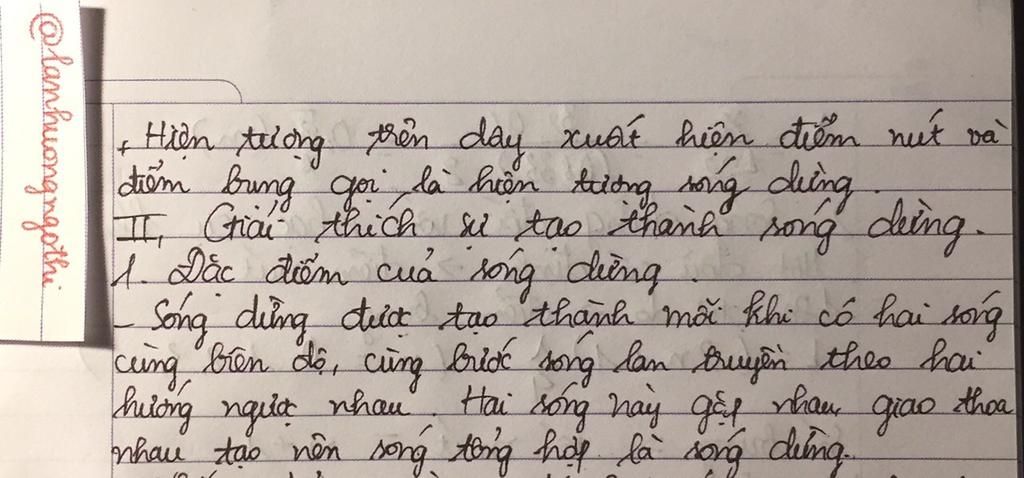 @lanhuongngothi
+ Hiện tượng trên dây xuất hiện điểm nút và
điểm bụng gọi là hiện tượng sóng dừng.
II, Giải thích sự tạo thành sóng dừng.
1. Đặc điểm của sóng dừng.
- Sóng dừng được tạo thành mỗi khi có hai sóng
cùng biên độ, cùng bước sóng lan truyền theo hai
hướng ngược nhau. Hai sóng này gặp nhau, giao thoa
nhau tạo nên sóng tổng hợp là sóng dừng.